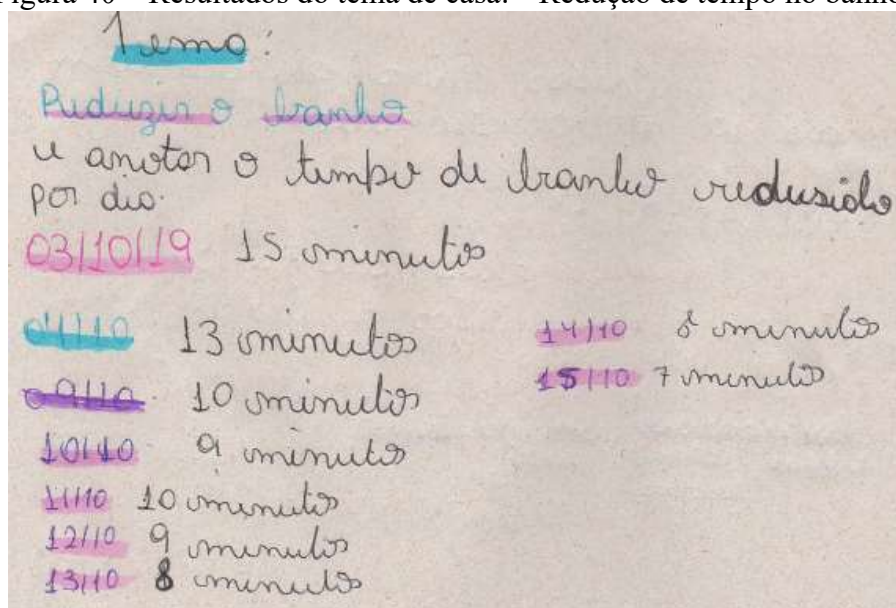 Figura 40 – Resultados do tema de casa: – Redução de tempo no banho
Tema:
Reduzir o banho
e anotar o tempo de banho redusido
por dia.
03/10/19 15 minutos
04/10 13 minutos
09/10 10 minutos
10/10 9 minutos
11/10 10 minutos
12/10 9 minutos
13/10 8 minutos
14/10 8 minutos
15/10 7 minutos